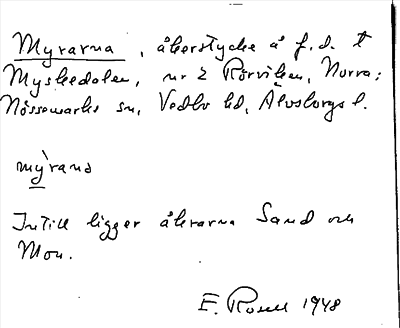 Myrarna, åkerstycke å f.d. t
Myskedalen, nr 2 Rörviken, Norra;
Nössemarks sn, Vedbo hd, Älvsborgs l.
my̆rana
Intill ligger åkrarna Sand och
Mon.
E. Rosell 1948